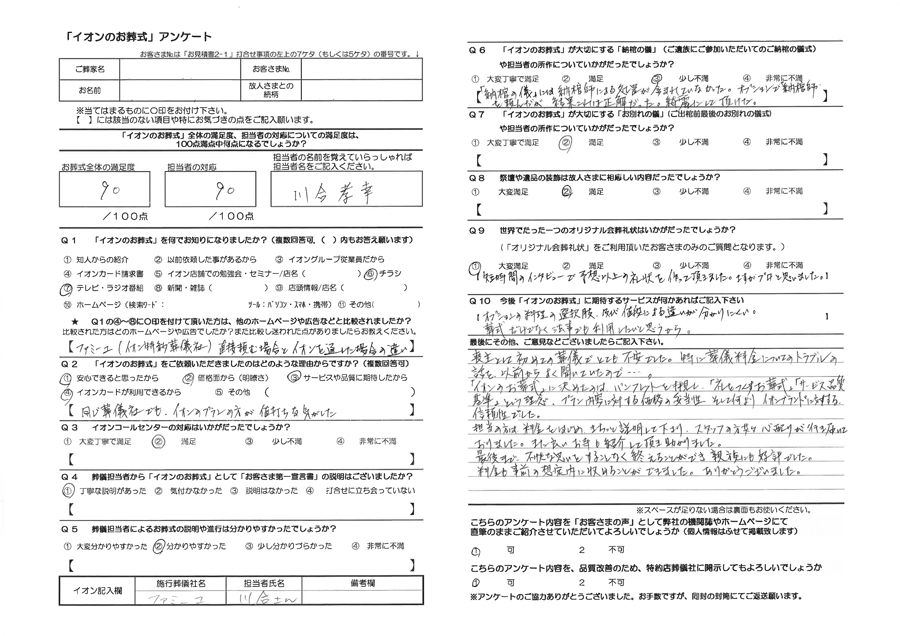 「イオンのお葬式」アンケート
お客さま№は「お見積書2-1」打合せ事項の左上の7ケタ（もしくは5ケタ）の番号です。↓
ご葬家名
お客さま№
お名前
故人さまとの続柄
※当てはまるものに○印をお付け下さい。
【　】には該当のない項目や特にお気づきの点をご記入願います。
「イオンのお葬式」全体の満足度、担当者の対応についての満足度は、
100点満点中何点になるでしょうか？
お葬式全体の満足度
担当者の対応
担当者の名前を覚えていらっしゃれば
担当者名をご記入ください。
90
90
川合孝幸
／100点
／100点
Q1　「イオンのお葬式」を何でお知りになりましたか？（複数回答可、（　）内もお答え願います）
① 知人からの紹介　② 以前依頼した事があるから　③ イオングループ従業員だから
④ イオンカード請求書　⑤ イオン店舗での勉強会・セミナー/店名（　　　）⑥ チラシ
⑦ テレビ・ラジオ番組　⑧ 新聞・雑誌（　　　）⑨ 店頭情報/店名（　　　）
⑩ ホームページ（検索ワード：　　　ツール：パソコン・スマホ・携帯）⑪ その他（　　　）
★　Q1の④～⑧に○印を付けて頂いた方は、他のホームページや広告などと比較されましたか？
比較された方はどのホームページや広告でしたか？また比較し迷われた点がありましたらお教えください。
【ファミーユ（イオン特約葬儀社）直接頼む場合とイオンを通した場合の違い】
Q2　「イオンのお葬式」をご依頼いただきましたのはどのような理由からですか？（複数回答可）
① 安心できると思ったから　② 価格面から（明瞭さ）　③ サービスや品質に期待したから
④ イオンカードが利用できるから　⑤ その他（　　　）
【同じ葬儀社でも、イオンのプランの方が値打ちな気がした】
Q3　イオンコールセンターの対応はいかがだったでしょうか？
① 大変丁寧で満足　② 満足　③ 少し不満　④ 非常に不満
【　】
Q4　葬儀担当者から「イオンのお葬式」として「お客さま第一宣言書」の説明はございましたか？
① 丁寧な説明があった　② 気付かなかった　③ 説明はなかった　④ 打合せに立ち会っていない
【　】
Q5　葬儀担当者によるお葬式の説明や進行は分かりやすかったでしょうか？
① 大変分かりやすかった　② 分かりやすかった　③ 少し分かりづらかった　④ 非常に不満
【　】
イオン記入欄
施行葬儀社名
担当者氏名
備者欄
ファミーユ
川合さん
Q6　「イオンのお葬式」が大切にする「納棺の儀」（ご遺族にご参加いただいてのご納棺の儀式）
や担当者の所作についていかがだったでしょうか？
① 大変丁寧で満足　② 満足　③ 少し不満　④ 非常に不満
【「納棺の儀」には納棺師による処置が含まれていなかった。オプションで納棺師
を頼んだが結果これは正解だった。綺麗にして頂けた。】
Q7　「イオンのお葬式」が大切にする「お別れの儀」（ご出棺前最後のお別れの儀式）
や担当者の所作についていかがだったでしょうか？
① 大変丁寧で満足　② 満足　③ 少し不満　④ 非常に不満
【　】
Q8　祭壇や遺品の装飾は故人さまに相応しい内容だったでしょうか？
① 大変満足　② 満足　③ 少し不満　④ 非常に不満
【　】
Q9　世界でたった一つのオリジナル会葬礼状はいかがだったでしょうか？
（「オリジナル会葬礼状」をご利用頂いたお客さまのみのご質問となります。）
① 大変満足　② 満足　③ 少し不満　④ 非常に不満
【短時間のインタビューで予想以上の礼状を作って頂きました。さすがプロと思いました。】
Q10　今後「イオンのお葬式」に期待するサービスが何かあればご記入下さい
【オプションの料理の選択肢、値段による違いが分かりにくい。
葬式だけでなく法事も利用したいと思うから。】
最後にその他、ご意見などございましたらご記入下さい。
喪主として初めての葬儀でとても不安でした。特に葬儀料金についてのトラブルの
話を以前からよく聞いていたので…。
「イオンのお葬式」に決めたのは、パンフレットを拝見し、「フレをなくすお葬式」「サービス品質
基準」という理念、プラン内容に対する価格の妥当性、そして何よりイオンブランドに対する
信頼性でした。
担当の方は料金をはじめ、きちっと説明して下さり、スタッフの方々も心配りが行き届いて
おりました。また良いお寺も紹介して頂き助かりました。
最後まで、不快な思いをすることなく終えることができ、親族にも好評でした。
料金も事前の想定内に収めることができました。ありがとうございました。
※スペースが足りない場合は裏面もお使いください。
こちらのアンケート内容を「お客さまの声」として弊社の機関誌やホームページにて
直筆のままご紹介させていただいてよろしいでしょうか（個人情報はふせて掲載致します）
1　可　　2　不可
こちらのアンケート内容を、品質改善のため、特約店葬儀社に開示してもよろしいでしょうか
1　可　　2　不可
※アンケートのご協力ありがとうございました。お手数ですが、同封の封筒にてご返送願います。